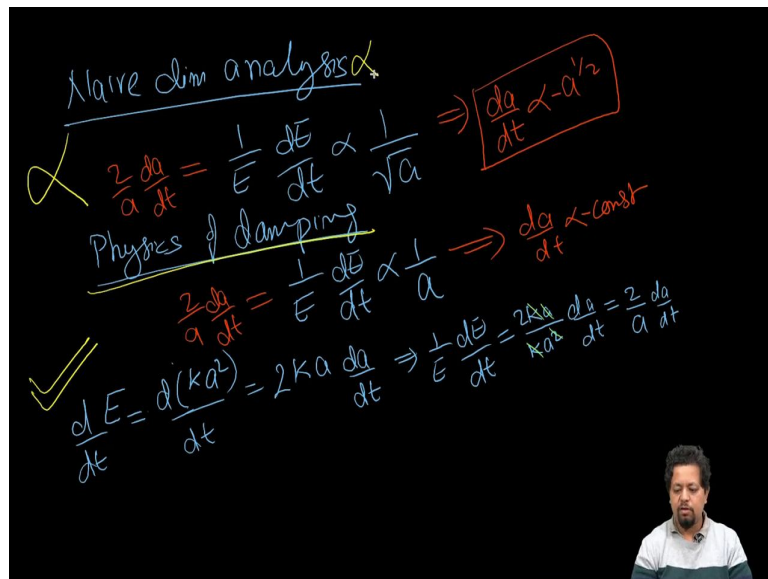 Naive dim analysis ∝
∝ 2/a da/dt = 1/E dE/dt ∝ 1/√a ⇒ da/dt ∝ -a^1/2
Physics of damping
2/a da/dt = 1/E dE/dt ∝ 1/a ⇒ da/dt ∝ -const
d/dt E = d(Ka²)/dt = 2Ka da/dt ⇒ 1/E dE/dt = 2Ka/Ka² da/dt = 2/a da/dt